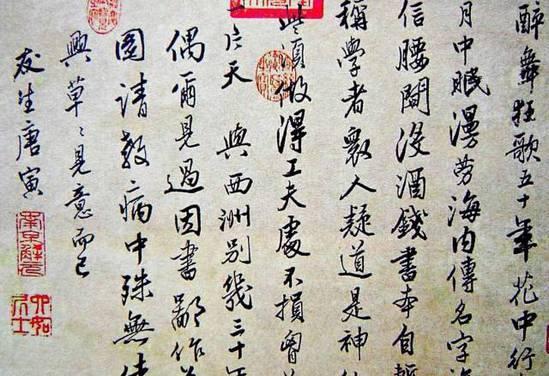 醉舞狂歌五十年花中行
月中眠漫劳海内傳名字
信腰間没酒錢書本自慚
稱學者衆人疑道是神
些須做得工夫處不損胷
片天 與西洲別幾三十年
偶爾見過因書鄙作
圖請教病中殊無佳
興草〻見意而已
友生唐寅
南京解元
六如居士